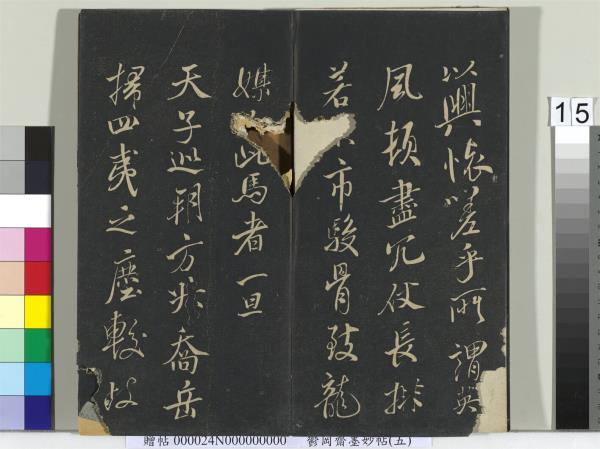 以興懷嗟乎所謂英
風頓盡冗仗長排
若市駿骨致龍
媒此馬者一旦
天子巡朝方升喬岳
掃四夷之塵較岐
15
贈帖 000024N000000000 鬱岡齋墨妙帖(五)